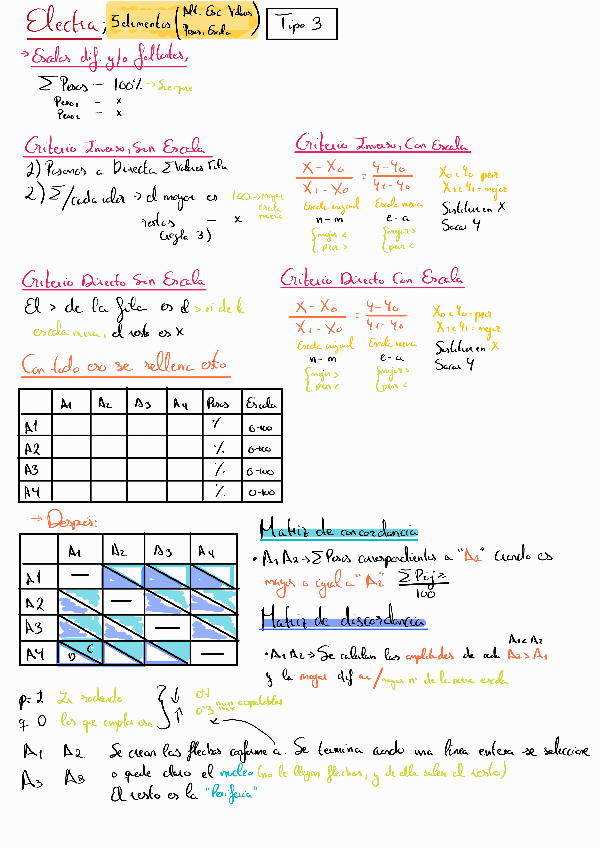 Electra; 5 elementos (Alt. Esc Valores
Pesos, Escala) Tipo 3
→ Escalas dif. y/o faltantes,
Σ Pesos — 100% → Siempre
Peso1 — x
Peso2 — x
Criterio Inverso, Sin Escala
1) Pasamos a Directa Σ Valores Fila
2) Σ/cada valor → el mayor es 100 → mayor escala nueva
restos — x
(regla 3)
Criterio Inverso, Con Escala
X-X0 / X1-X0 = Y-Y0 / Y1-Y0
X0 e Y0 - peor
X1 e Y1 = mejor
Escala original Escala nueva
n-m e-a
{mejor < {mejor >
{peor > {peor <
Sustituir en X
Sacar Y
Criterio Directo Sin Escala
El > de la fila es el > nº de la
escala nueva, el resto es x
Criterio Directo Con Escala
X-X0 / X1-X0 = Y-Y0 / Y1-Y0
X0 e Y0 - peor
X1 e Y1 = mejor
Escala original Escala nueva
n-m e-a
{mejor > {mejor >
{peor < {peor <
Sustituir en X
Sacar Y
Con todo eso se rellena esto
A1 A2 A3 A4 Pesos Escala
A1 % 0-100
A2 % 0-100
A3 % 0-100
A4 % 0-100
→ Después:
A1 A2 A3 A4
A1 —
A2 —
A3 —
A4 D C —
Matriz de concordancia
• A1 A2 → Σ Pesos correspondientes a "A1" cuando es
mayor o igual a "A2" ΣPij≥ / 100
Matriz de discordancia
• A1 A2 → Se calculan las amplitudes de cada A1<A2 A2>A1
y la mayor dif / mayor nº de la nueva escala
p= 1
q= 0 los que cumplan eso
0'7
0'3 aceptables
A1 A2
A3 A3
Se crean las flechas conforme a. Se termina cuando una línea entera se seleccione
o quede claro el núcleo (no le llegan flechas, y de ella salen el resto)
El resto es la "Periferia"